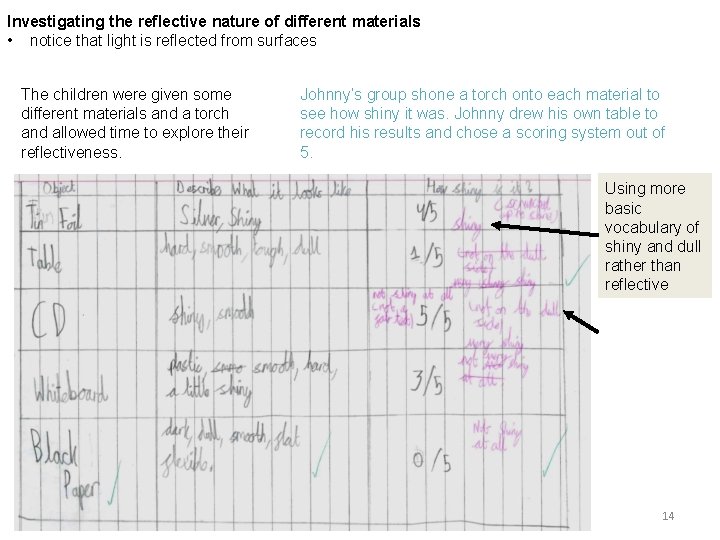 Investigating the reflective nature of different materials
• notice that light is reflected from surfaces
The children were given some
different materials and a torch
and allowed time to explore their
reflectiveness.
Johnny's group shone a torch onto each material to
see how shiny it was. Johnny drew his own table to
record his results and chose a scoring system out of
5.
Using more
basic
vocabulary of
shiny and dull
rather than
reflective
Object Describe What it looks like How shiny is it?
Tin Foil Silver, Shiny 4/5 shiny
Table hard, smooth, tough, dull 1/5 (not on the dull
side)
very shiny shiny
CD shiny, smooth not shiny at all 5/5 (not on the dull
side)
very shiny
Whiteboard plastic, smooth, hard, 3/5 not very shiny
a little shiny at all
Black dark, dull, smooth, flat Not shiny
Paper flexible. 0/5 at all
14